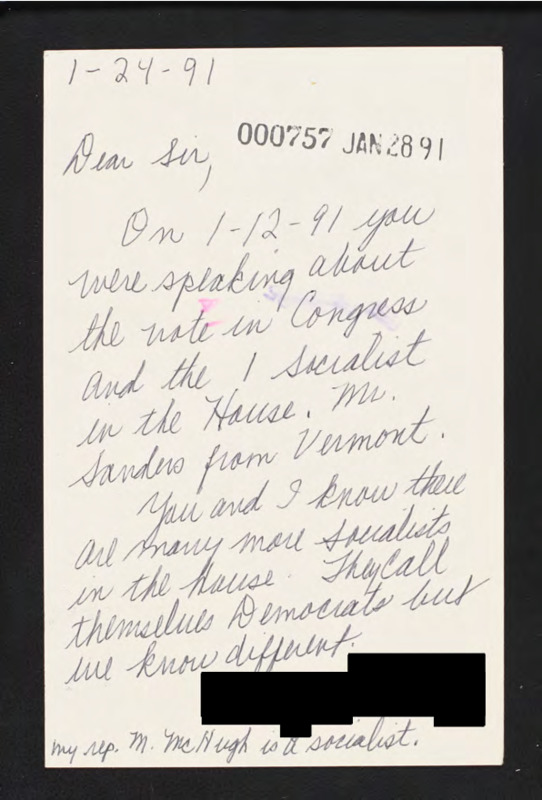 1-24-91
000757 JAN 28 91
Dear Sir,
On 1-12-91 you
were speaking about
the vote in Congress
and the 1 Socialist
in the House. Mr.
Sanders from Vermont.
You and I know there
are many more Socialists
in the House. They Call
themselves Democrats but
we know different.
my rep. M. McHugh is a socialist.